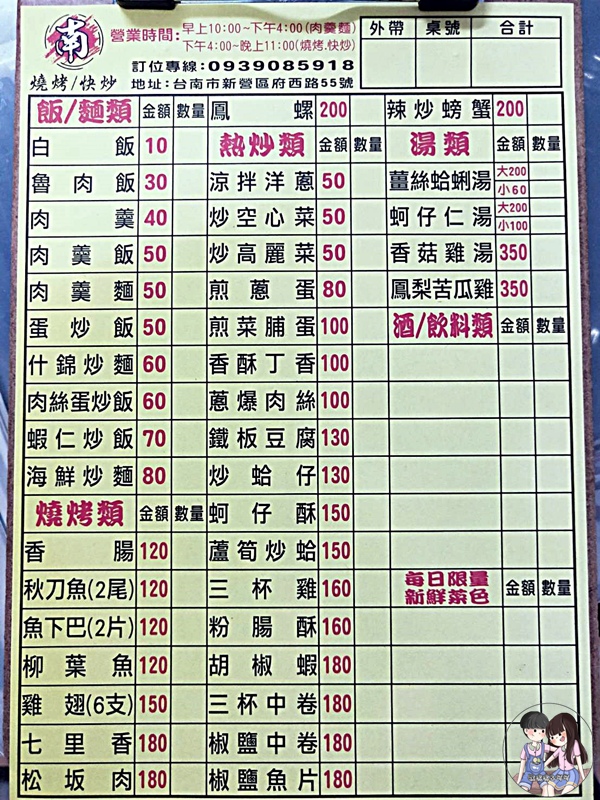 南
燒烤/快炒
營業時間：早上10:00~下午4:00(肉羹麵)
下午4:00~晚上11:00(燒烤.快炒)
訂位專線：0939085918
地址：台南市新營區府西路55號
外帶 桌號 合計
飯/麵類 金額 數量
白飯 10
魯肉飯 30
肉羹 40
肉羹飯 50
肉羹麵 50
蛋炒飯 50
什錦炒麵 60
肉絲蛋炒飯 60
蝦仁炒飯 70
海鮮炒麵 80
燒烤類 金額 數量
香腸 120
秋刀魚(2尾) 120
魚下巴(2片) 120
柳葉魚 120
雞翅(6支) 150
七里香 180
松坂肉 180
鳳螺 200
熱炒類 金額 數量
涼拌洋蔥 50
炒空心菜 50
炒高麗菜 50
煎蔥蛋 80
煎菜脯蛋 100
香酥丁香 100
蔥爆肉絲 100
鐵板豆腐 130
炒蛤仔 130
蚵仔酥 150
蘆筍炒蛤 150
三杯雞 160
粉腸酥 160
胡椒蝦 180
三杯中卷 180
椒鹽中卷 180
椒鹽魚片 180
辣炒螃蟹 200
湯類 金額 數量
薑絲蛤蜊湯 大200 小60
蚵仔仁湯 大200 小100
香菇雞湯 350
鳳梨苦瓜雞 350
酒/飲料類 金額 數量
每日限量
新鮮菜色 金額 數量